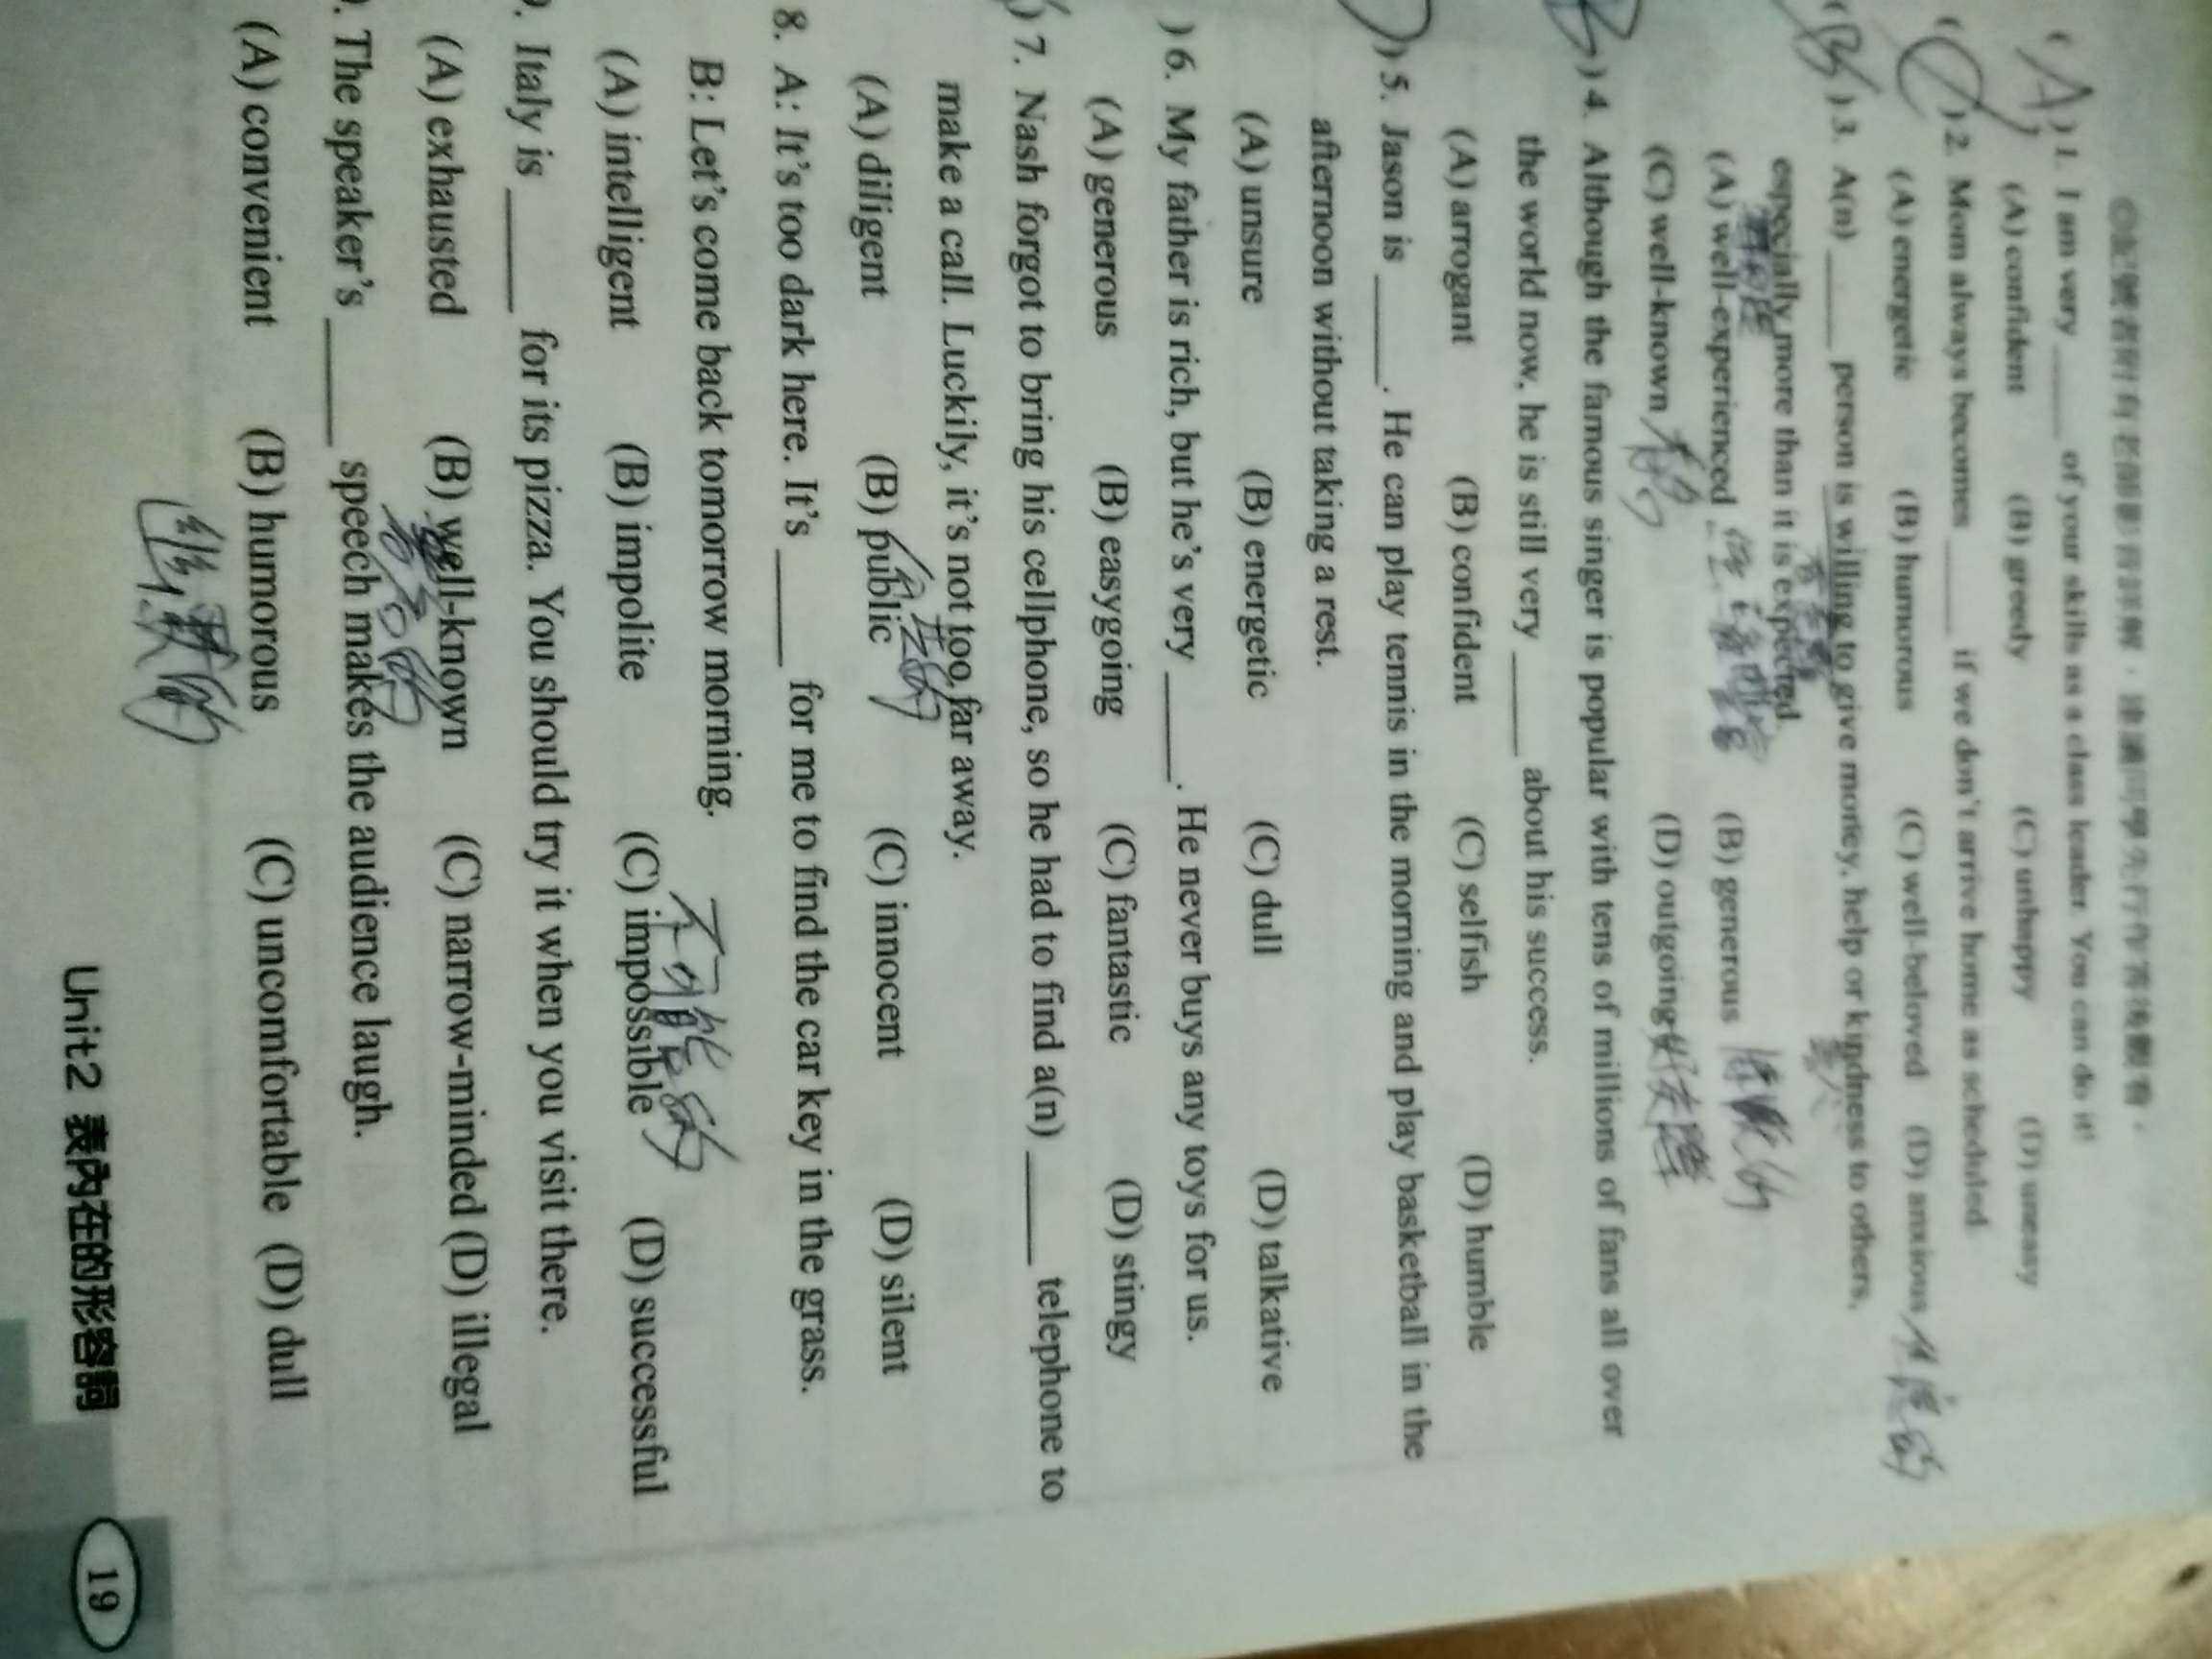 (A) 1. I am very ____ of your skills as a class leader. You can do it!
(A) confident (B) greedy (C) unhappy (D) uneasy
) 2. Mom always becomes ____ if we don't arrive home as scheduled.
(A) energetic (B) humorous (C) well-beloved (D) anxious
(B) 3. A(n) ____ person is willing to give money, help or kindness to others,
especially more than it is expected.
(A) well-experienced (B) generous
(C) well-known (D) outgoing
) 4. Although the famous singer is popular with tens of millions of fans all over
the world now, he is still very ____ about his success.
(A) arrogant (B) confident (C) selfish (D) humble
) 5. Jason is ____. He can play tennis in the morning and play basketball in the
afternoon without taking a rest.
(A) unsure (B) energetic (C) dull (D) talkative
) 6. My father is rich, but he's very ____. He never buys any toys for us.
(A) generous (B) easygoing (C) fantastic (D) stingy
) 7. Nash forgot to bring his cellphone, so he had to find a(n) ____ telephone to
make a call. Luckily, it's not too far away.
(A) diligent (B) public 公共的 (C) innocent (D) silent
8. A: It's too dark here. It's ____ for me to find the car key in the grass.
B: Let's come back tomorrow morning.
不可能的
(A) intelligent (B) impolite (C) impossible (D) successful
. Italy is ____ for its pizza. You should try it when you visit there.
(A) exhausted (B) well-known (C) narrow-minded (D) illegal
. The speaker's ____ speech makes the audience laugh.
(A) convenient (B) humorous (C) uncomfortable (D) dull
Unit2 表內在的形容詞 19